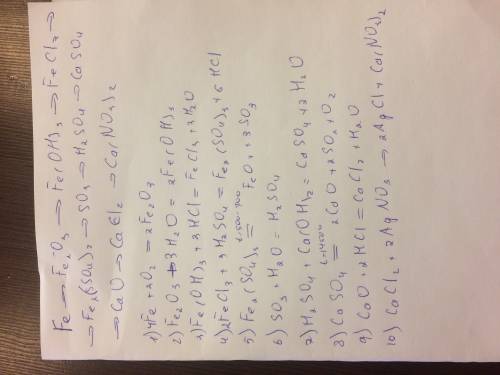 Fe → Fe2O3 → Fe(OH)3 → FeCl3 →
→ Fe2(SO4)3 → SO3 → H2SO4 → CaSO4
→ CaO → CaCl2 → Ca(NO3)2
1) 4Fe + 3O2 = 2Fe2O3
2) Fe2O3 + 3H2O = 2Fe(OH)3
3) Fe(OH)3 + 3HCl = FeCl3 + 3H2O
4) 2FeCl3 + 3H2SO4 = Fe2(SO4)3 + 6HCl
5) Fe2(SO4)3 = FeO3 + 3SO3
6) SO3 + H2O = H2SO4
7) H2SO4 + Ca(OH)2 = CaSO4 + 2H2O
8) CaSO4 = 2CaO + 2SO2 + O2
9) CaO + 2HCl = CaCl2 + H2O
10) CaCl2 + 2AgNO3 → 2AgCl + Ca(NO3)2